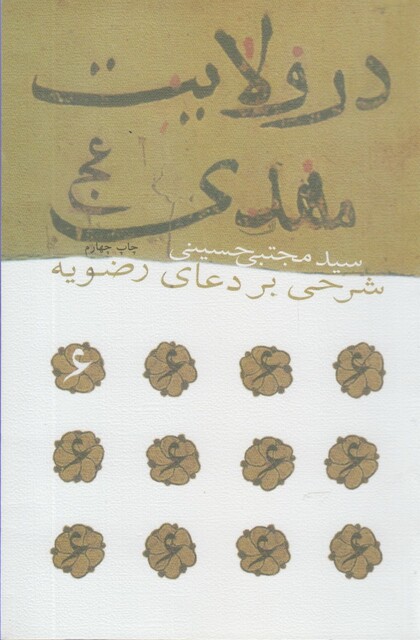 در ولایت
مهدی عج
چاپ چهارم
سید مجتبی حسینی
شرحی بر دعای رضویه
۶